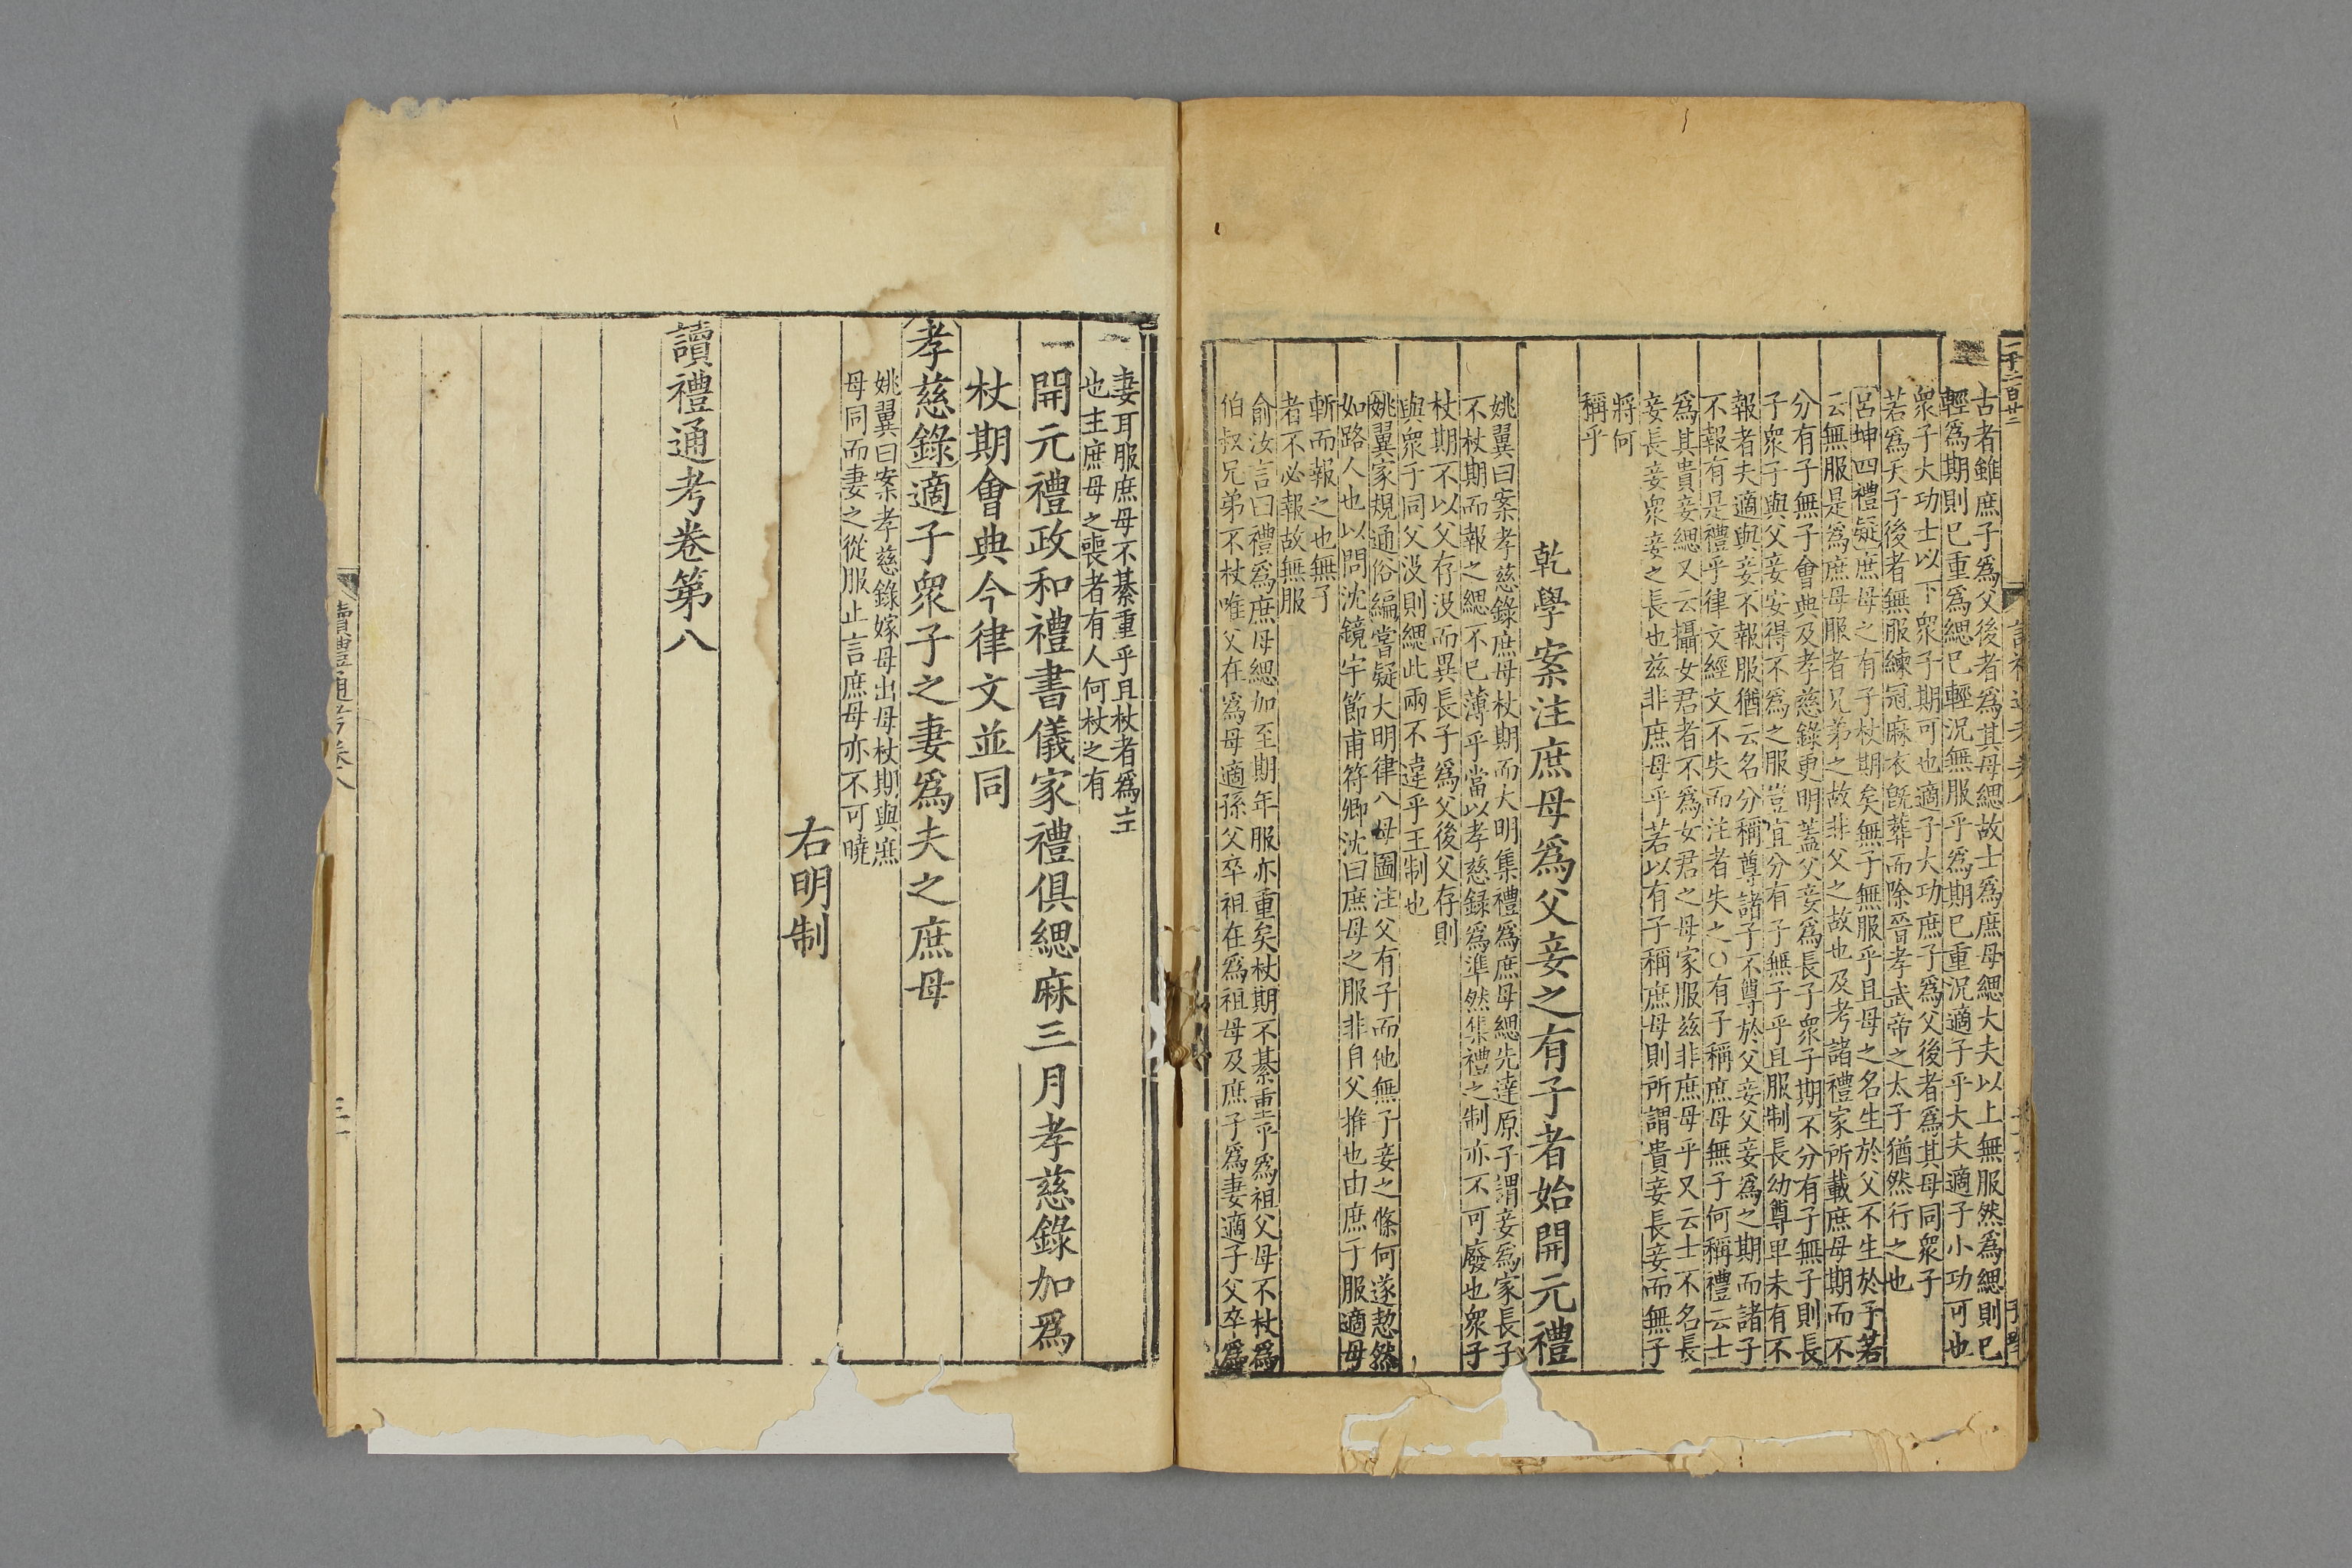 古者雖庶子爲父後者爲其母緦故士爲庶母緦大夫以上無服然爲緦則已
輕爲期則已重爲緦已輕況無服乎爲期已重況適子乎大夫適子小功可也
衆子大功士以下衆子期可也適子大功庶子爲父後者爲其母同衆子
若爲天子後者無服練冠麻衣旣葬而除晉孝武帝之太子猶然行之也
呂坤四禮疑庶母之有子杖期矣無子無服乎且母之名生於父不生於子若
云無服是爲庶母服者兄弟之故非父之故也及考諸禮家所載庶母期而不
分有子無子會典及孝慈錄更明蓋父妾爲長子衆子期不分有子無子則長
子衆子與父妾安得不爲之服豈宜分有子無子乎且服制長幼尊卑未有不
報者夫適與妾不報服猶云名分稱尊諸子不尊於父妾父妾爲之期而諸子
不報有是禮乎律文經文不失而注者失之○有子稱庶母無子何稱禮云士
爲其貴妾緦又云攝女君者不爲女君之母家服兹非庶母乎又云士不名長
妾長妾衆妾之長也兹非庶母乎若以有子稱庶母則所謂貴妾長妾而無子
將何
稱乎
乾學案注庶母爲父妾之有子者始開元禮
姚翼曰案孝慈錄庶母杖期而大明集禮爲庶母緦先達原子謂妾爲家長子
不杖期而報之緦不已薄乎當以孝慈錄爲準然集禮之制亦不可廢也衆子
杖期不以父存没而異長子爲父後父存則
與衆子同父没則緦此兩不違乎王制也
姚翼家規通俗編嘗疑大明律八母圖注父有子而他無子妾之條何遂恝然
如路人也以問沈鏡宇節甫符卿沈曰庶母之服非自父推也由庶子服適母
斬而報之也無子
者不必報故無服
俞汝言曰禮爲庶母緦加至期年服亦重矣杖期不綦重乎爲祖父母不杖爲
伯叔兄弟不杖唯父在爲母適孫父卒祖在爲祖母及庶子爲妻適子父卒爲
妻耳服庶母不綦重乎且杖者爲主
也主庶母之喪者有人何杖之有
開元禮政和禮書儀家禮俱緦麻三月孝慈錄加爲
杖期會典今律文並同
孝慈錄適子衆子之妻爲夫之庶母
姚翼曰案孝慈錄嫁母出母杖期與庶
母同而妻之從服止言庶母亦不可曉
右明制
讀禮通考卷第八
讀禮通考卷八